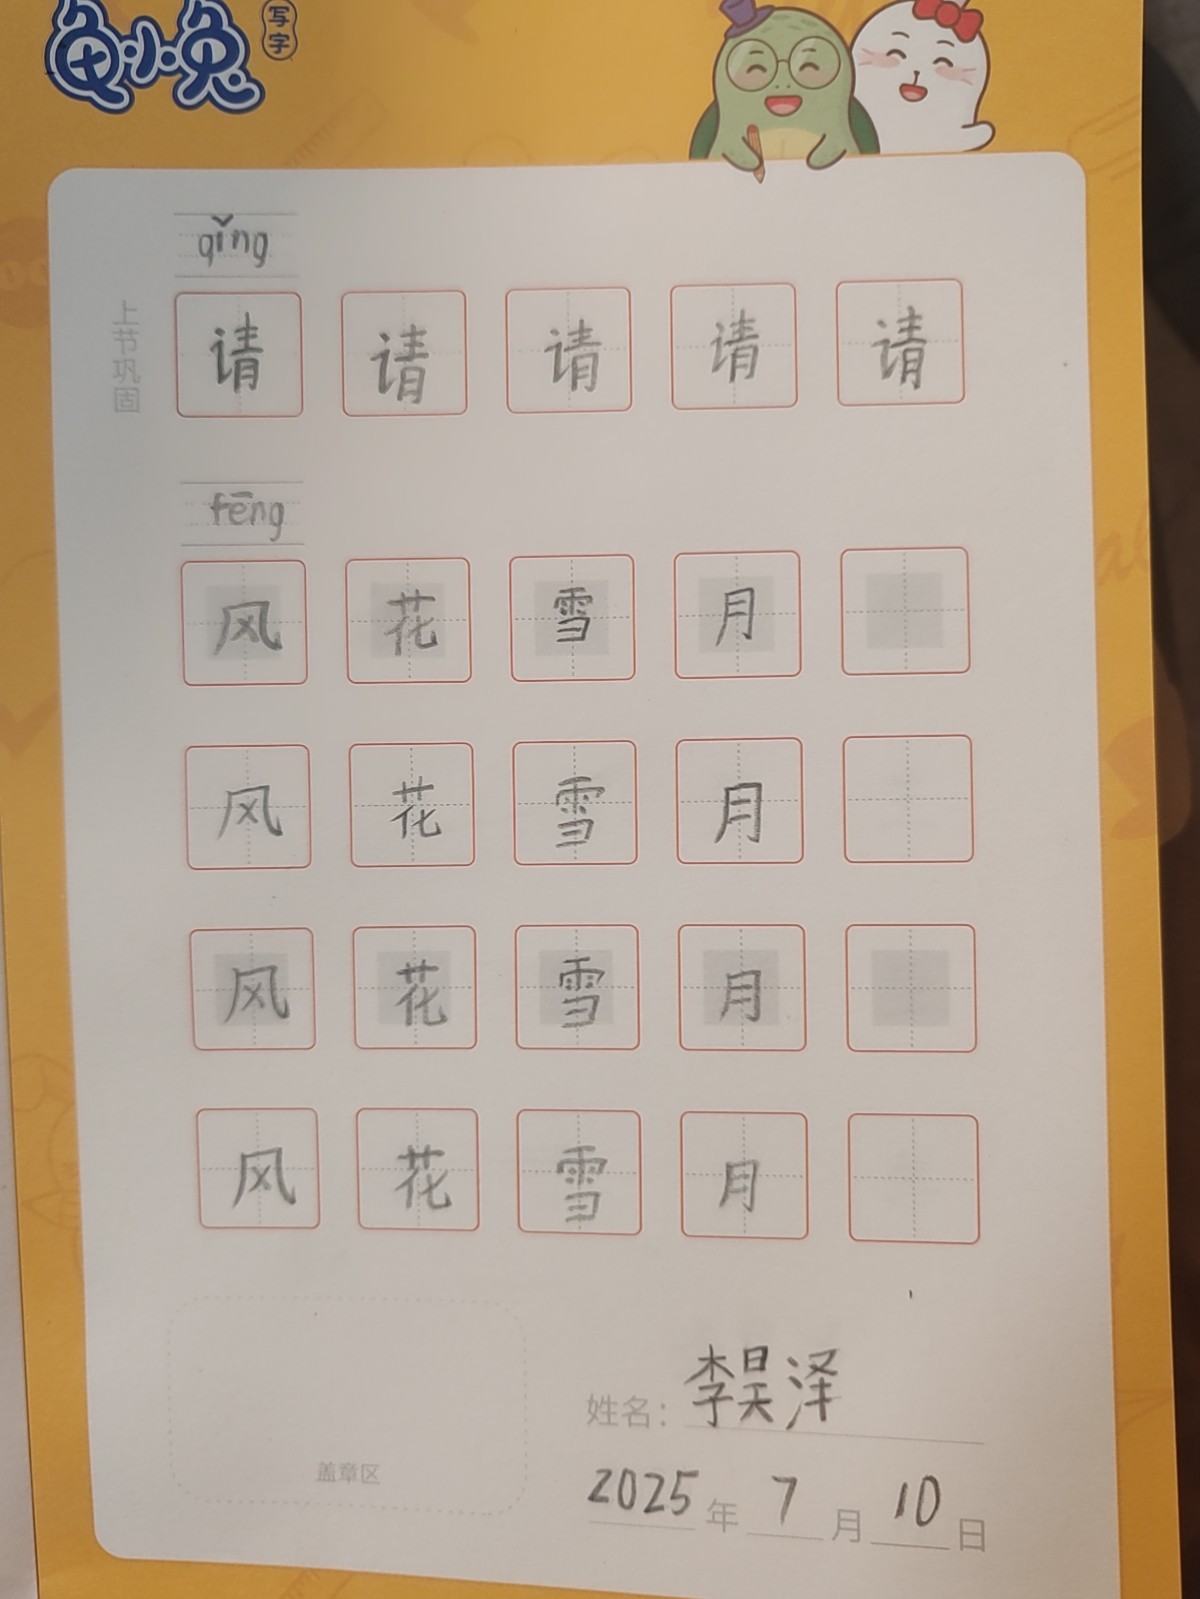 龟小兔
写字
qǐng
上节巩固
请 请 请 请 请
fēng
风 花 雪 月
风 花 雪 月
风 花 雪 月
风 花 雪 月
姓名：李昊泽
盖章区
2025年7月10日